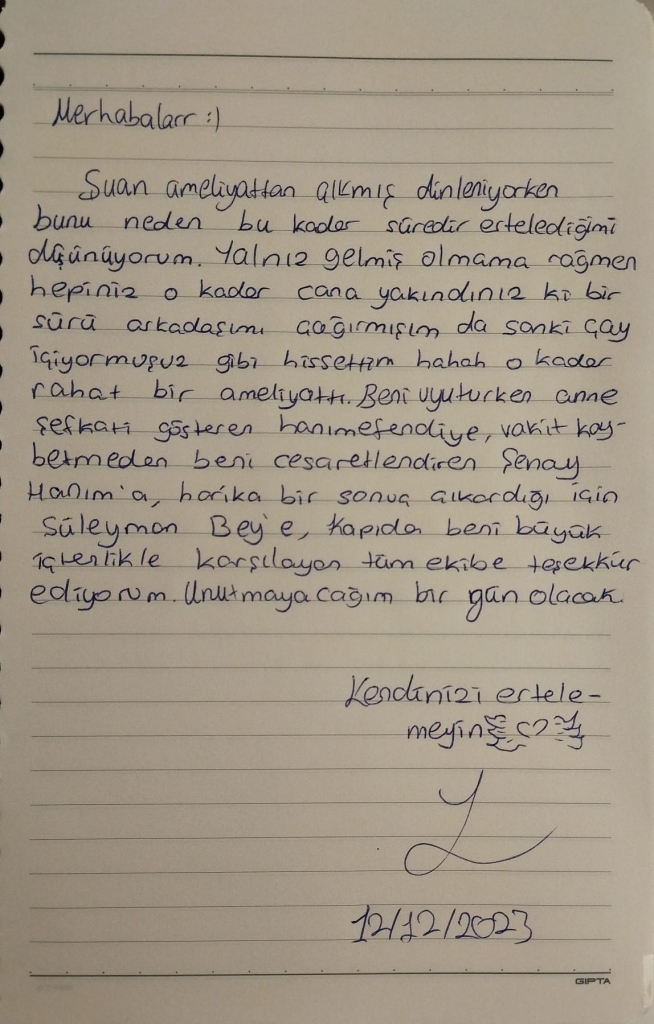 Merhabalarr :)
Şuan ameliyattan çıkmış dinleniyorken
bunu neden bu kadar süredir ertelediğimi
düşünüyorum. Yalnız gelmiş olmama rağmen
hepiniz o kadar cana yakındınız ki bir
sürü arkadaşımı çağırmışım da sanki çay
içiyormuşuz gibi hissettim hahah o kadar
rahat bir ameliyattı. Beni uyuturken anne
şefkati gösteren hanımefendiye, vakit kay-
betmeden beni cesaretlendiren Şenay
Hanım'a, harika bir sonuç çıkardığı için
Süleyman Bey'e, kapıda beni büyük
içtenlikle karşılayan tüm ekibe teşekkür
ediyorum. Unutmayacağım bir gün olacak.
Kendinizi ertele-
meyin
12/12/2023
GIPTA